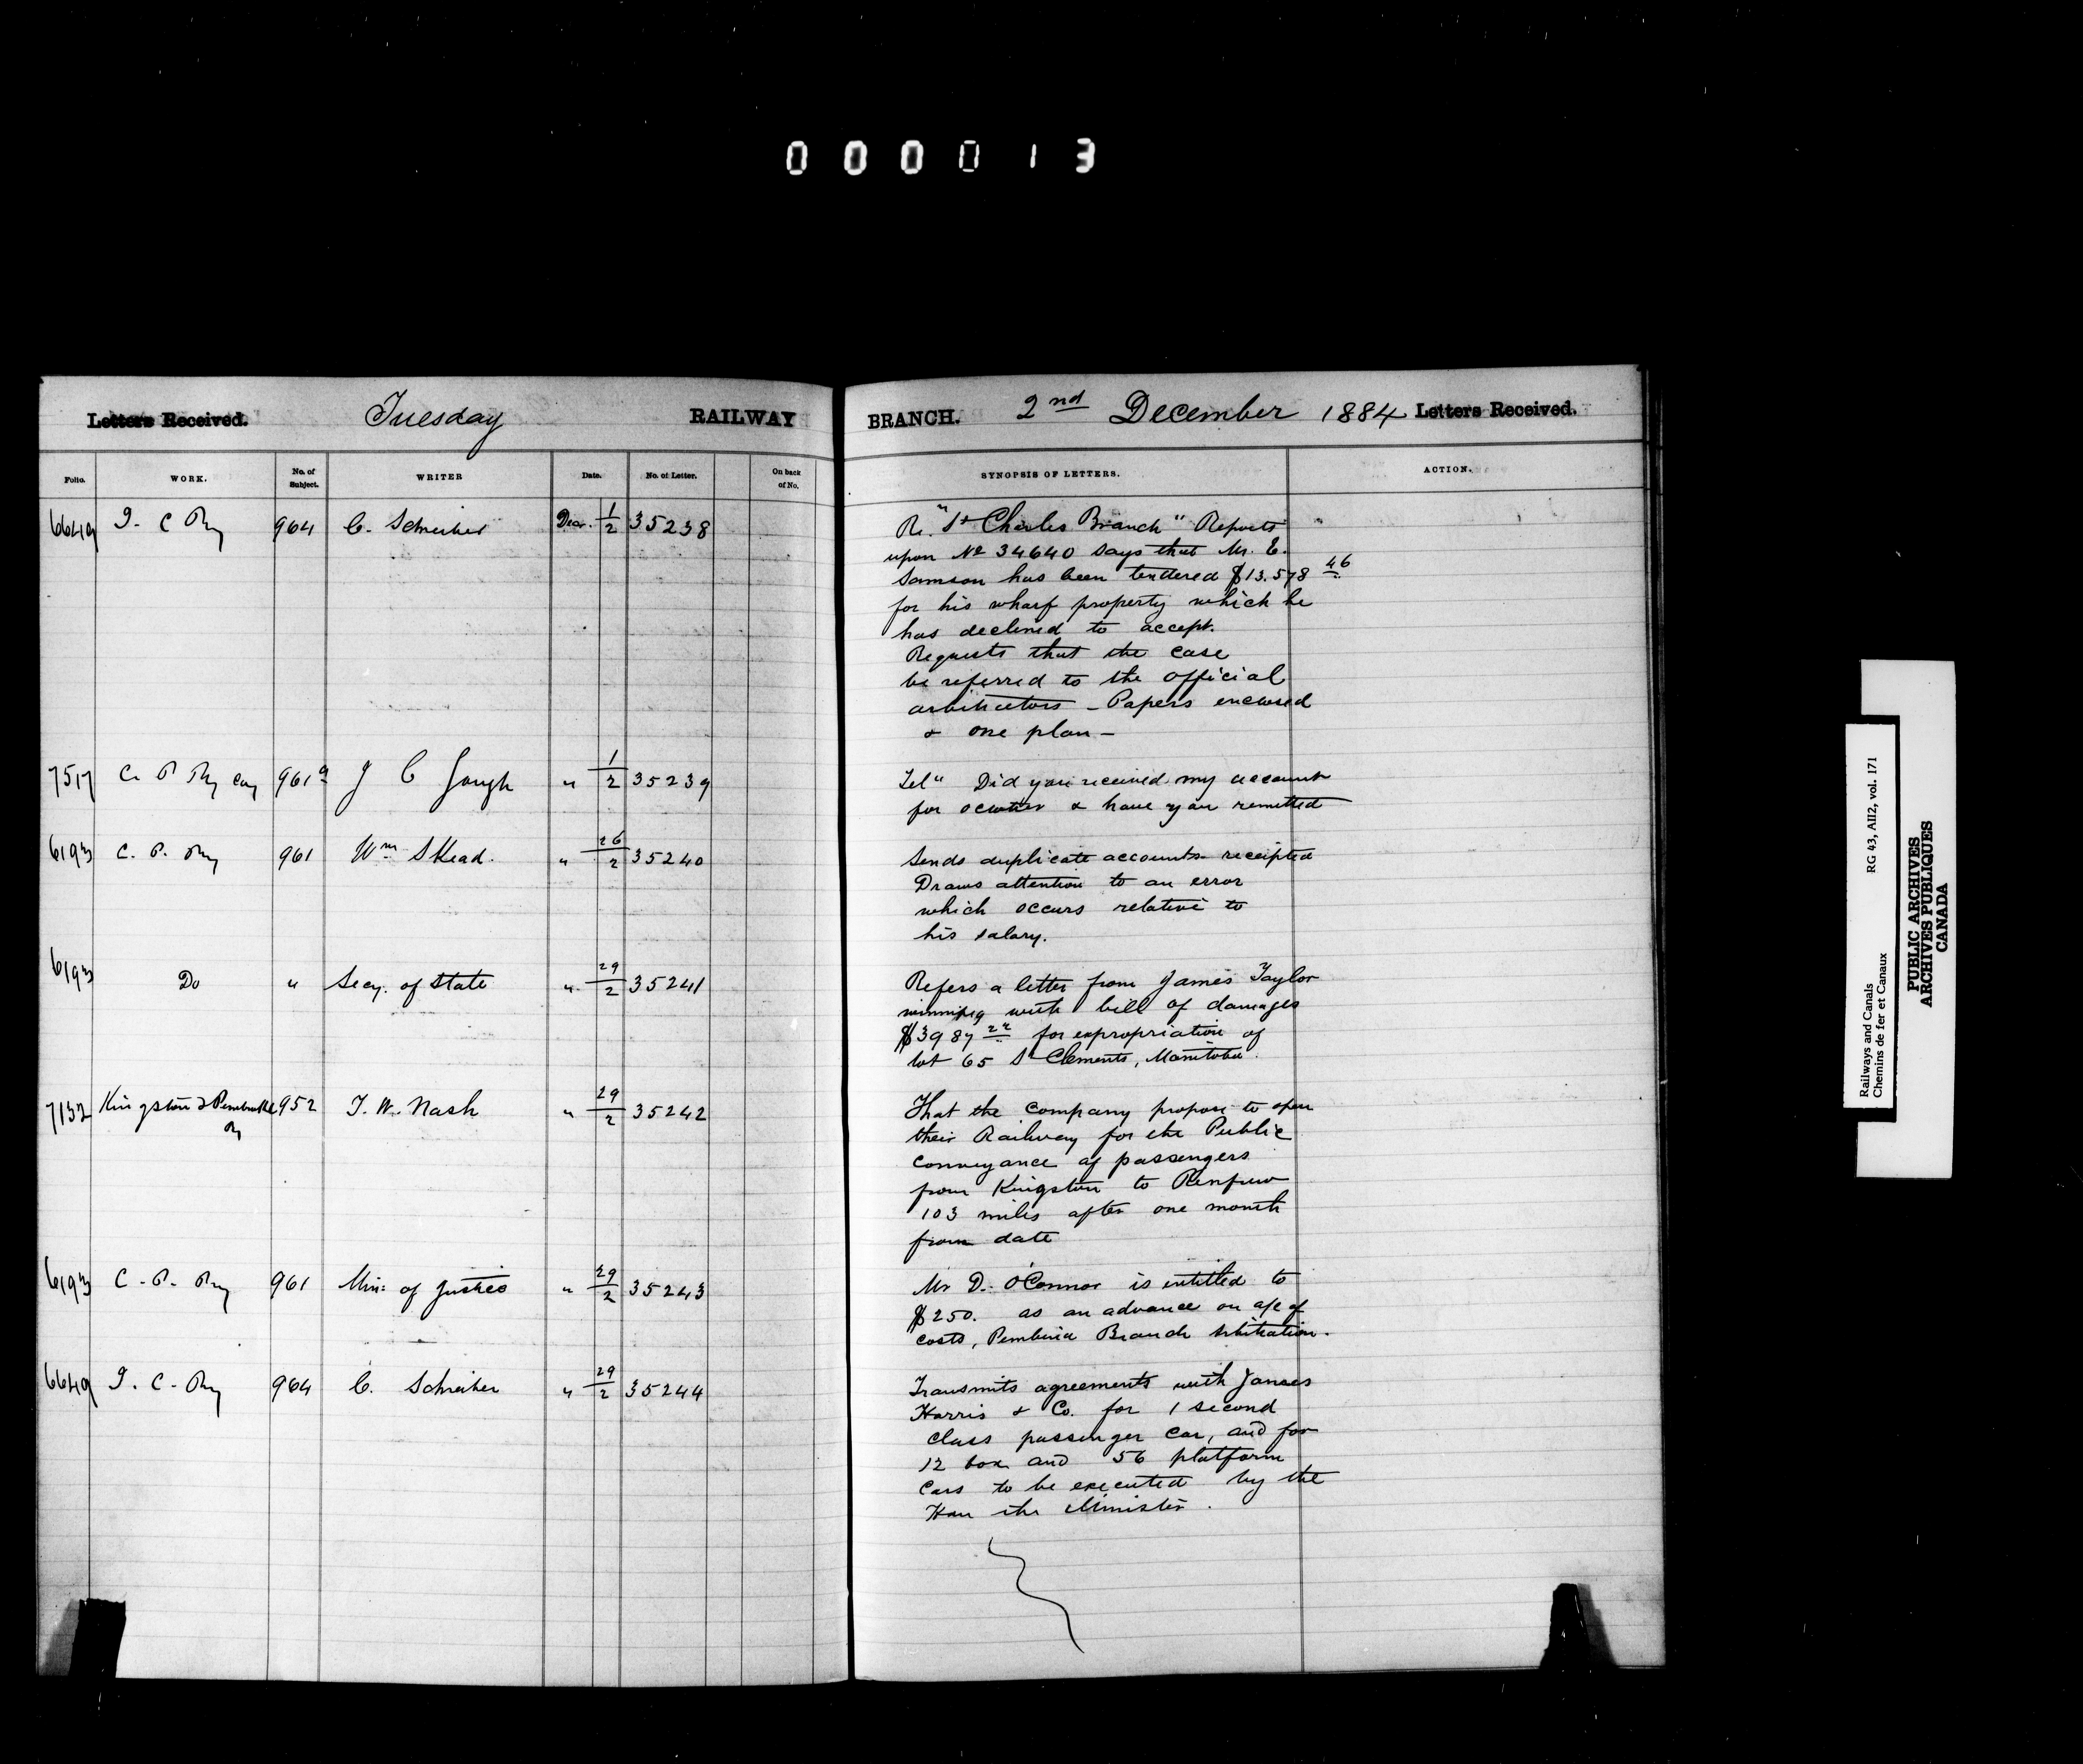 000013
Letters Received. Tuesday RAILWAY BRANCH. 2nd December 1884 Letters Received.
Folio. WORK. No. of Subject. WRITER Date. No. of Letter. On back of No. SYNOPSIS OF LETTERS. ACTION.
6649 I. C Ry 964 C. Schreiber Decr. 1/2 35238 Re. "St Charles Branch" Reports
upon No 34640 says that Mr. E.
Samson has been tendered $13.578 46
for his wharf property which he
has declined to accept.
Requests that the case
be referred to the official
arbitrators - Papers enclosed
& one plan -
7517 C. P Ry Coy 961a J C Gough " 1/2 35239 Tel" Did you received my account
for & have you remitted
6193 C. P. Ry 961 Wm Skead. " 26/2 35240 Sends duplicate accounts receipted
Draws attention to an error
which occurs relative to
his salary.
6193 Do " Secy. of State " 29/2 35241 Refers a letter from James Taylor
Winnipeg with bill of damages
$3987 22 for expropriation of
lot 65 St Clements, Manitoba.
7132 Kingston & Pembroke Ry 952 T. W. Nash " 29/2 35242 That the company propose to open
their Railway for the Public
conveyance of passengers
from Kingston to Renfrew
103 miles after one month
from date
6193 C. P. Ry 961 Min: of Justice " 29/2 35243 Mr D. O'Connor is entitled to
$250. as an advance on a/c of
costs, Pembina Branch Arbitration.
6649 I. C. Ry 964 C. Schreiber " 29/2 35244 Transmits agreements with James
Harris & Co. for 1 second
class passenger car, and for
12 box and 56 platform
cars to be executed by the
Hon the Minister.
Railways and Canals RG 43, AII2, vol. 171
Chemins de fer et Canaux
PUBLIC ARCHIVES
ARCHIVES PUBLIQUES
CANADA